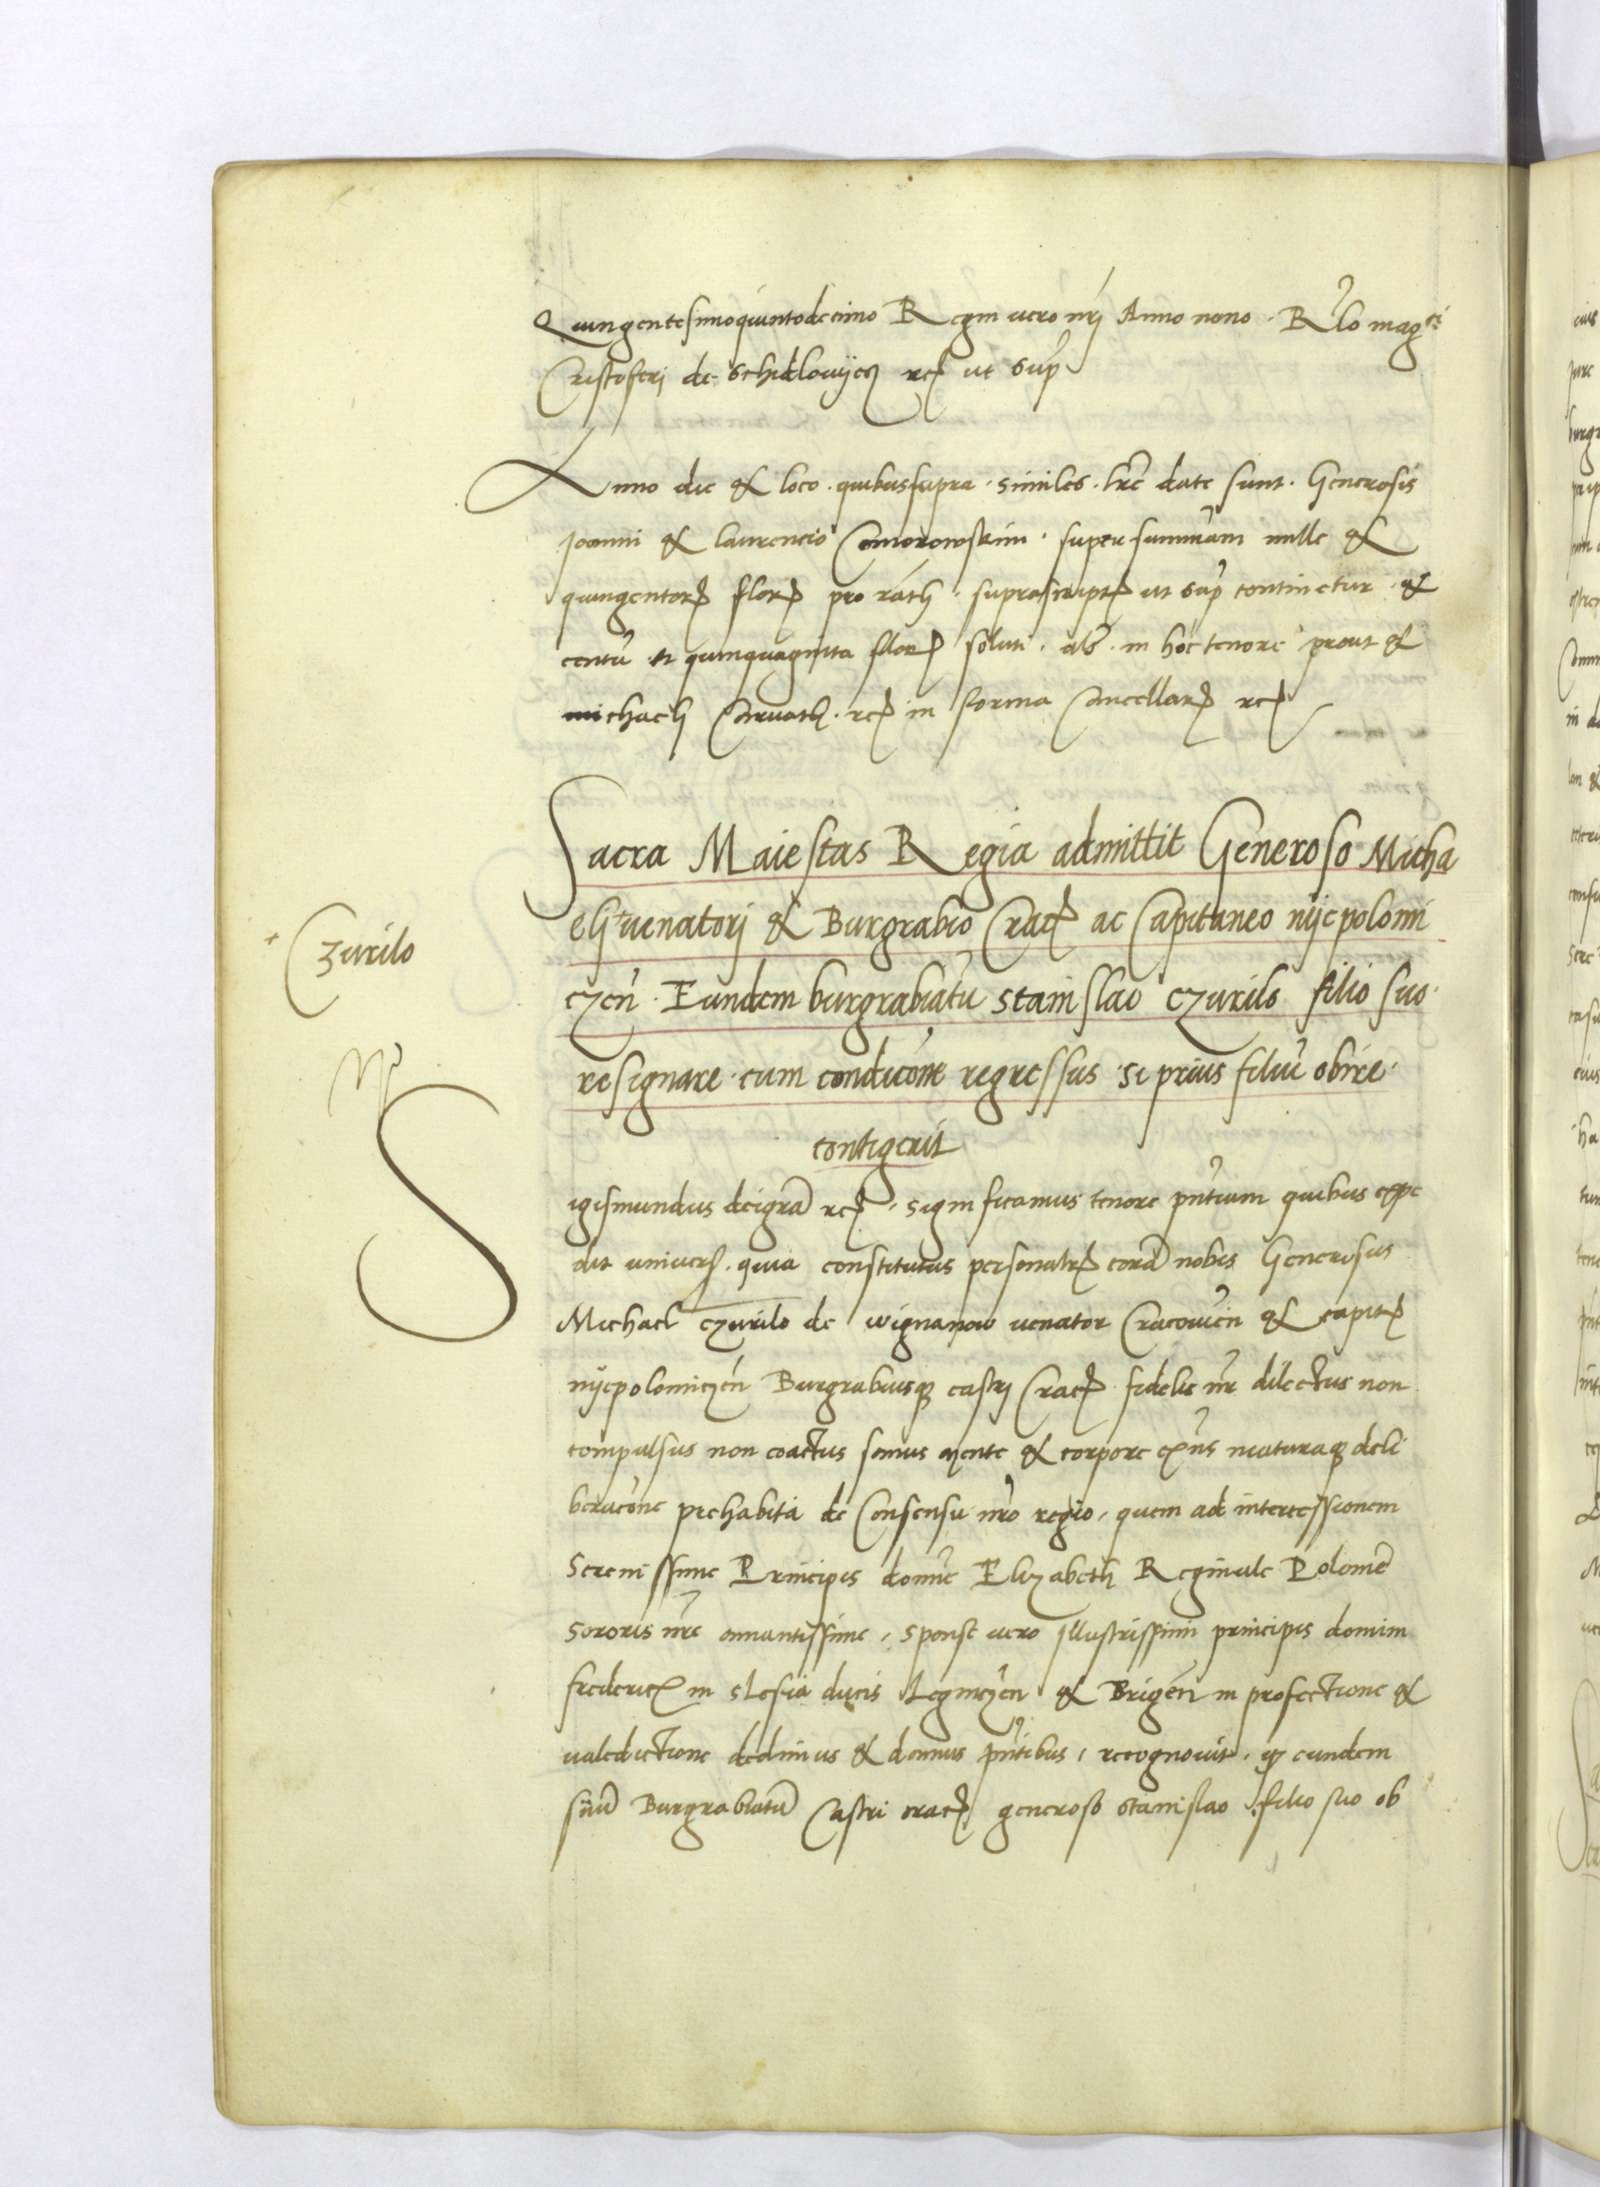 Quingentesimoquintodecimo Regni vero nrj Anno nono. Rlo magci
Cristoferj de Schidlovijcz etc ut supra
Anno die & loco. quibussupra. similes. lre date sunt. Generosis
Joanni & laurencio Comorowskim. super summam mille &
quingentor flor pro rath. suprascript ut sup continetur. &
centu et quinquaginta flor soluti. als. in hoc tenore prout &
michaeli etc in forma Cancellar etc
Sacra Maiestas Regia admittit Generoso Micha
eli venatorj & Burgrabio Crac ac Capitaneo nijepolomi
czen. Eundem burgrabiatu Stanislao Czurilo filio suo.
resignare. cum condicione regressus. si prius filiu obire.
contigerit
Czurilo
Sigismundus deigra etc. Significamus tenore pntium quibus expe
dit univers. quia constitutus personalr cora nobis Generosus
Michael Czurilo de wignanow venator Cracovien & capit
nijepolomiczen Burgrabiusq castrj Crac. fidelis nr dilectus non
compulsus non coactus sanus mente & corpore exns maturaq deli
beracone prehabita de Consensu nro regio. quem ad intercessionem
Serenissime Principis domne Elizabeth Reginule Polonie
Sororis nre amantissime. sponse vero Illustrissimi principis domini
frederici in slesia ducis Legniczen & Brigen in profectione &
valedictione dedimus & damus pntibus. recognovit. q eundem
suu Burgrabiatu Castri crac generoso Stanislao filio suo ob